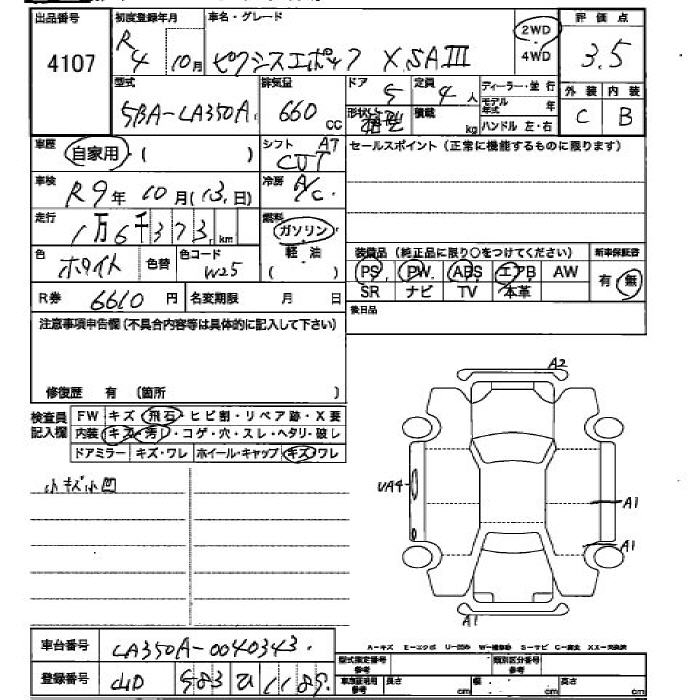 出品番号 初度登録年月 車名・グレード 2WD 評価点
4107 R4 10月 ピクシスエポック X SAIII 4WD 3.5
型式 排気量 ドア 定員 ディーラー・並 行 外装 内装
5BA-LA350A 660cc 5 4人 モデル年式 年 C B
形状 積載 kg ハンドル 左・右
車歴 自家用 ( ) シフト AT CVT セールスポイント (正常に機能するものに限ります)
車検 R9年 10月(13日) 冷房 A/C
走行 1万6千373km 燃料 ガソリン
軽 油
( )
色 ホワイト 色替 色コード W25 装備品 (純正品に限り○をつけてください) 新車保証書
PS PW ABS エアB AW 有・無
R券 6610円 名変期限 月 日 SR ナビ TV 本革
注意事項申告欄(不具合内容等は具体的に記入して下さい) 後日品
修復歴 有 (箇所 )
検査員記入欄 FW キズ・飛石・ヒビ割・リペア跡・X要
内装 キズ・汚レ・コゲ・穴・スレ・ヘタリ・破レ
ドアミラー キズ・ワレ ホイール・キャップ キズ・ワレ
小キズ小凹
A2
UA4
A1
A1
A1
車台番号 LA350A-0040343
A-キズ E-エクボ U-凹み W-補修跡 S-サビ C-腐食 XX-交換済
型式指定番号 参考 類別区分番号 参考
登録番号 車庫証明用 参考 長さ cm 幅 cm 高さ cm